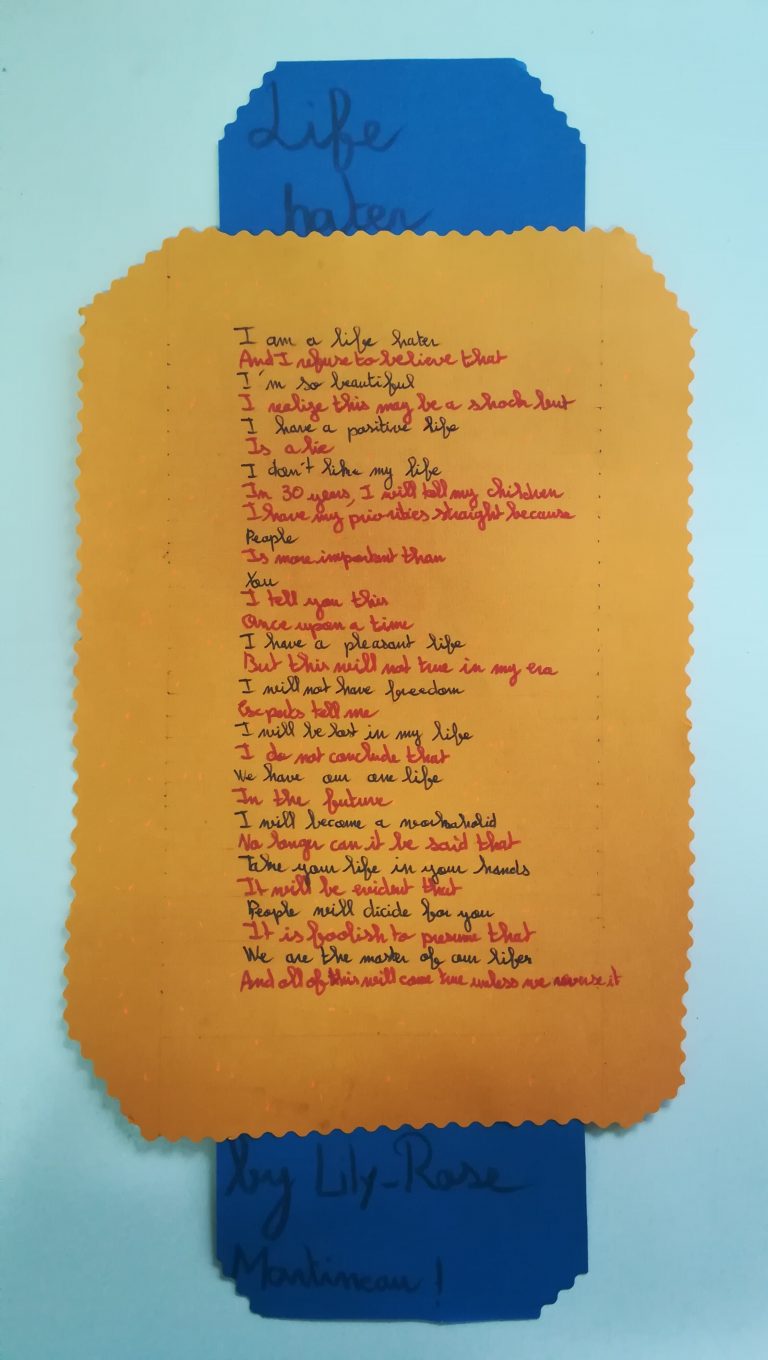 Life
hater
I am a life hater
And I refuse to believe that
I'm so beautiful
I realize this may be a shock but
I have a positive life
Is a lie
I don't like my life
In 30 years, I will tell my children
I have my priorities straight because
People
Is more important than
You
I tell you this
Once upon a time
I have a pleasant life
But this will not true in my era
I will not have freedom
Experts tell me
I will be lost in my life
I do not conclude that
We have our one life
In the future
I will become a
No longer can it be said that
Take your life in your hands
It will be evident that
People will dicide for you
It is foolish to presume that
We are the master of our lifes
And all of this will come true unless we reverse it
by Lily-Rose
Martineau !